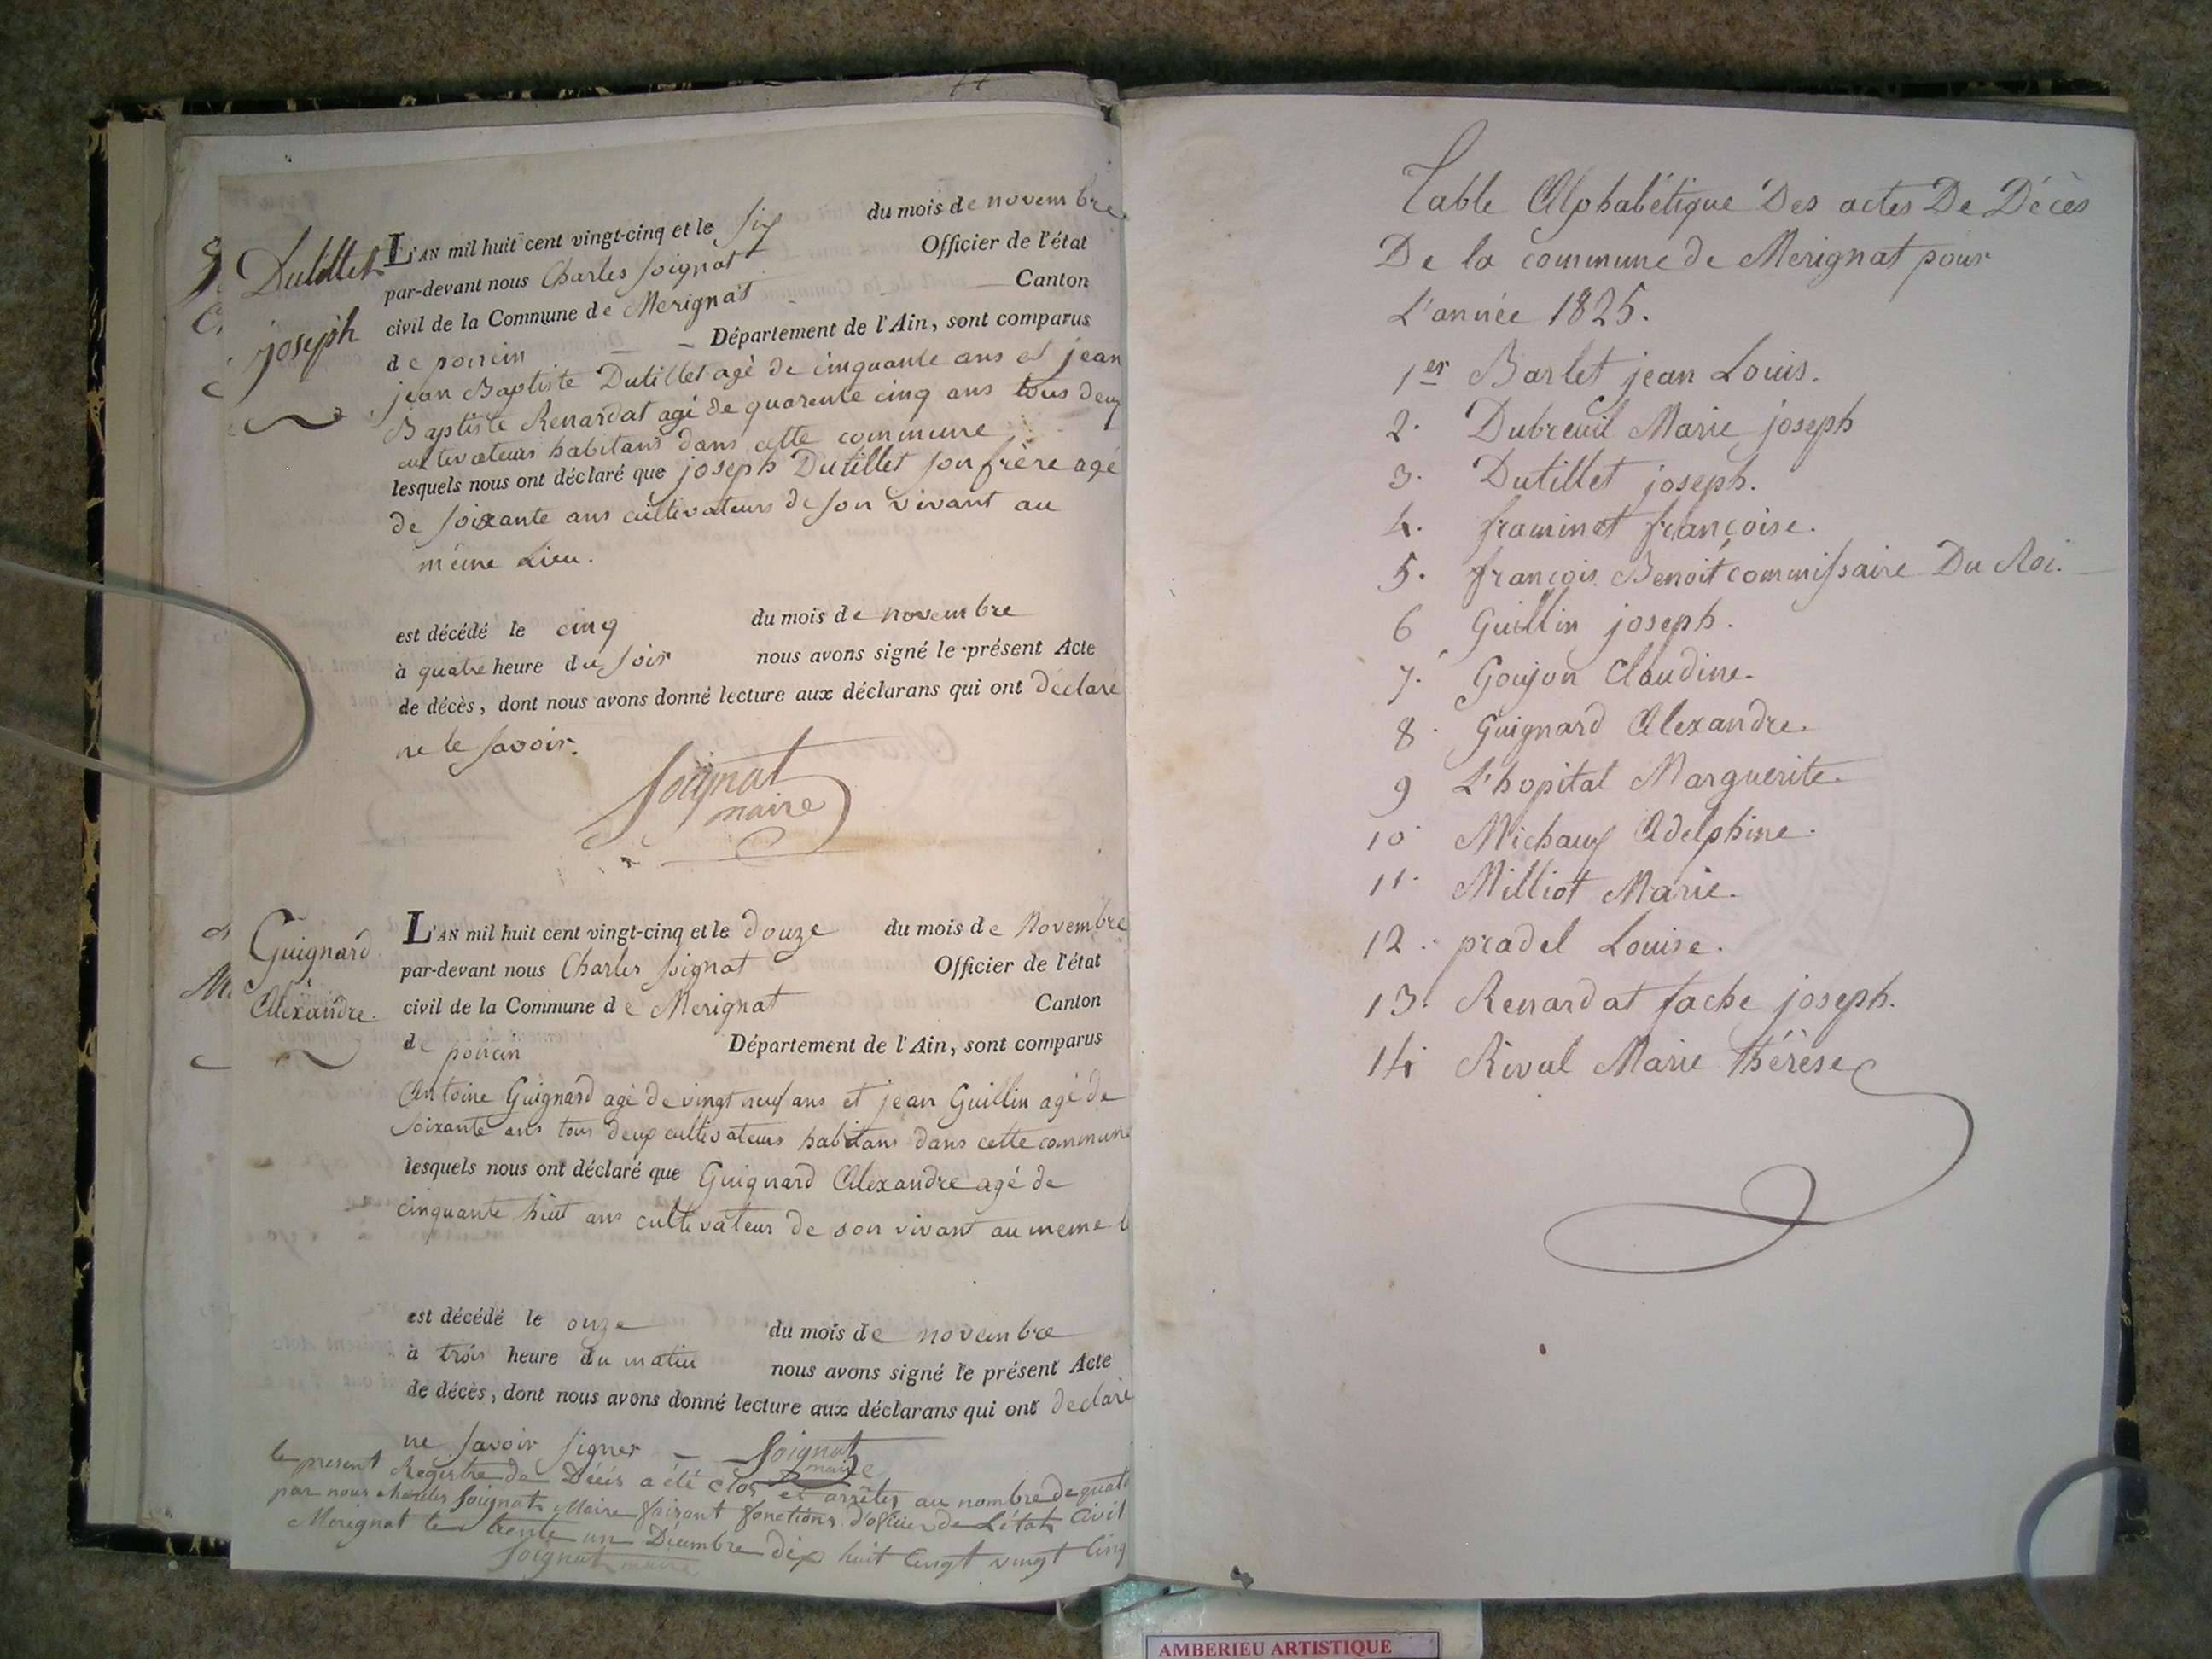 Dutillet
joseph
L'AN mil huit cent vingt-cinq et le six du mois de novembre
par-devant nous Charles Soignat Officier de l'état
civil de la Commune de Merignat Canton
de poncin Département de l'Ain, sont comparus
jean Baptiste Dutillet agé de cinquante ans et jean
Baptiste Renardat agé de quarente cinq ans tous deux
cultivateurs habitans dans cette commune
lesquels nous ont déclaré que joseph Dutillet son frère agé
de soixante ans cultivateurs de son vivant au
même Lieu.
est décédé le cinq du mois de novembre
à quatre heure du soir nous avons signé le présent Acte
de décès, dont nous avons donné lecture aux déclarans qui ont déclaré
ne le savoir.
Soignat
maire
Guignard
Alexandre.
L'AN mil huit cent vingt-cinq et le douze du mois de Novembre
par-devant nous Charles Soignat Officier de l'état
civil de la Commune de Merignat Canton
de poncin Département de l'Ain, sont comparus
Antoine Guignard agé de vingt neuf ans et jean Guillin agé de
soixante ans tous deux cultivateurs habitans dans cette commune
lesquels nous ont déclaré que Guignard Alexandre agé de
cinquante huit ans cultivateur de son vivant au meme l
est décédé le onze du mois de novembre
à trois heure du matin nous avons signé le présent Acte
de décès, dont nous avons donné lecture aux déclarans qui ont declaré
ne savoir signer Soignat
maire
le present Registre de Décés a été clos et arrêtes au nombre de quato
par nous charles Soignat Maire faisant fonctions d'officier de L'état Civil
Merignat le trente un Décembre dix huit Cengt vingt Cinq
Soignat maire
Table Alphabétique Des actes De Décès
De la commune de Merignat pour
L'année 1825.
1er Barlet jean Louis.
2. Dubreuil Marie joseph
3. Dutillet joseph.
4. framinet françoise.
5. françois Benoit commissaire Du Roi.
6 Guillin joseph.
7. Goujon Claudine.
8. Guignard Alexandre.
9 L'hopital Marguerite.
10 Michaux Adelphine.
11. Milliot Marie.
12. pradel Louise.
13. Renardat fache joseph.
14 Rival Marie thérèse
AMBERIEU ARTISTIQUE